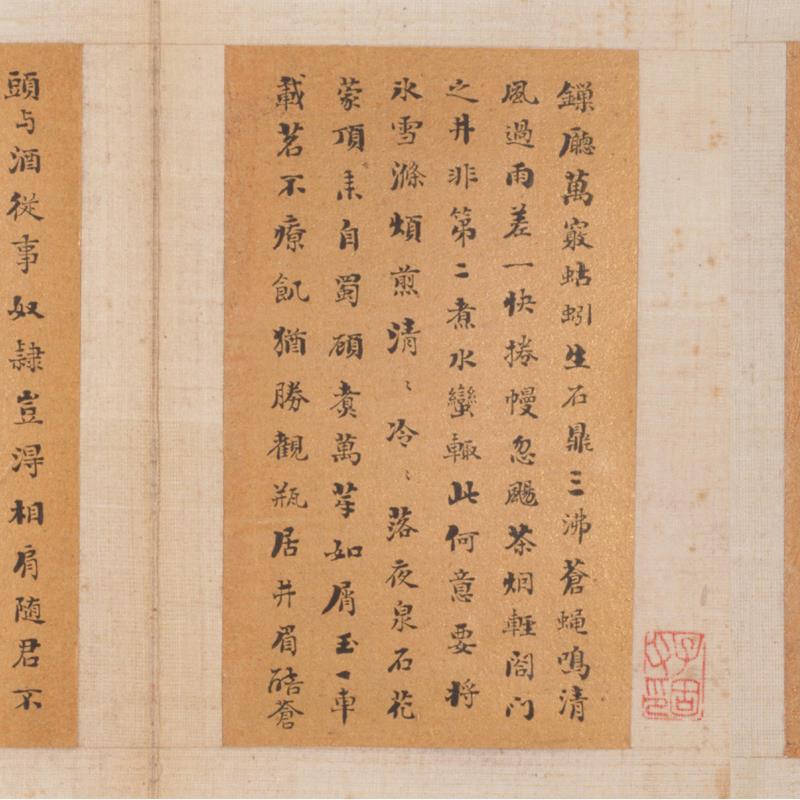 鏁廳萬竅蛄蚓生石鼎三沸蒼蝿鳴清
風過雨差一快捲幔忽颺茶烟輕閤門
之井非第二煮水蠻輙此何意要将
氷雪滌煩煎清〻冷〻落夜泉石花
蒙頂来自蜀碩煮萬茅如屑玉一車
載茗不療飢猶勝觀瓶居井眉酷蒼
頭与酒從事奴隷豈淂相肩随君不